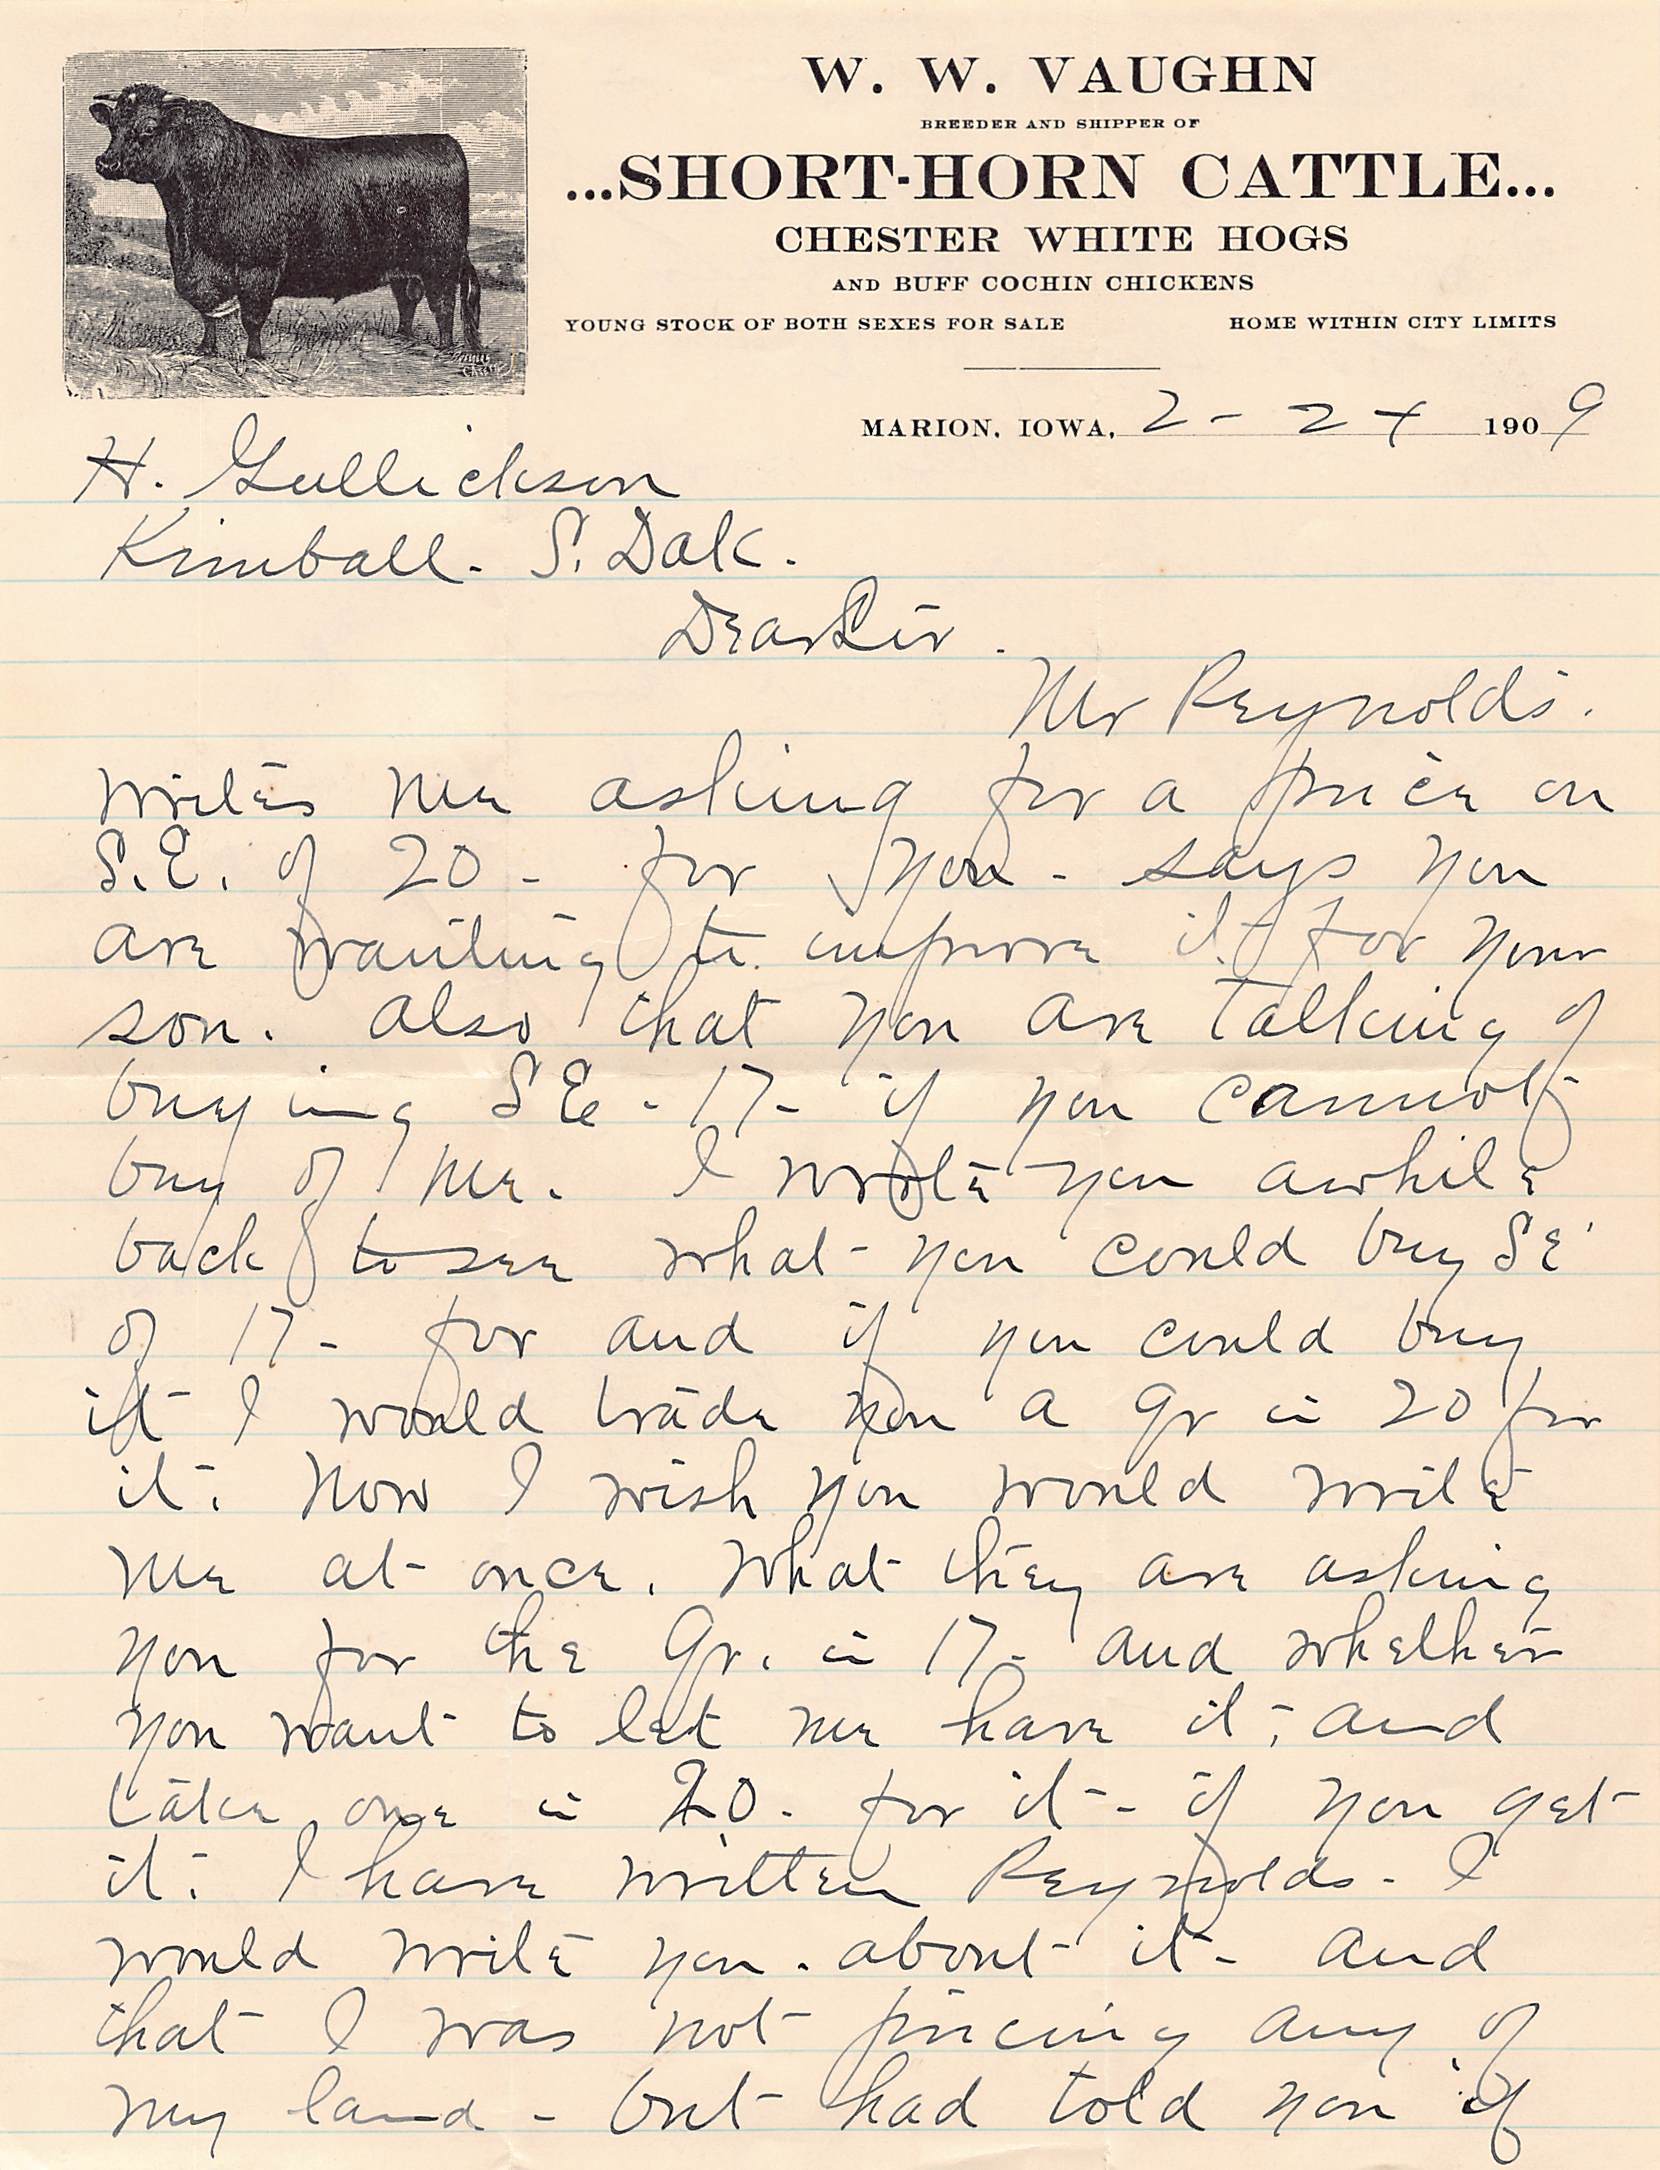 W. W. VAUGHN
BREEDER AND SHIPPER OF
...SHORT-HORN CATTLE...
CHESTER WHITE HOGS
AND BUFF COCHIN CHICKENS
YOUNG STOCK OF BOTH SEXES FOR SALE HOME WITHIN CITY LIMITS
MARION, IOWA, 2-24 1909
H. Gullickson
Kimball. S. Dak.
Dear Sir.
Mr Reynolds.
writes me asking for a price on
S.E. of 20 - for you - says you
are wanting to improve it for your
son. also that you are talking of
buying SE - 17 - if you cannot
buy of me. I wrote you awhile
back to see what you could buy SE
of 17 - for and if you could buy
it I would trade you a qr in 20 for
it. Now I wish you would write
me at once. What they are asking
you for the Qr. in 17 - and whether
you want to let me have it, and
take one in 20. for it - if you get
it. I have written Reynolds - I
would write you. about it - and
that I was not pricing any of
my land - but had told you if